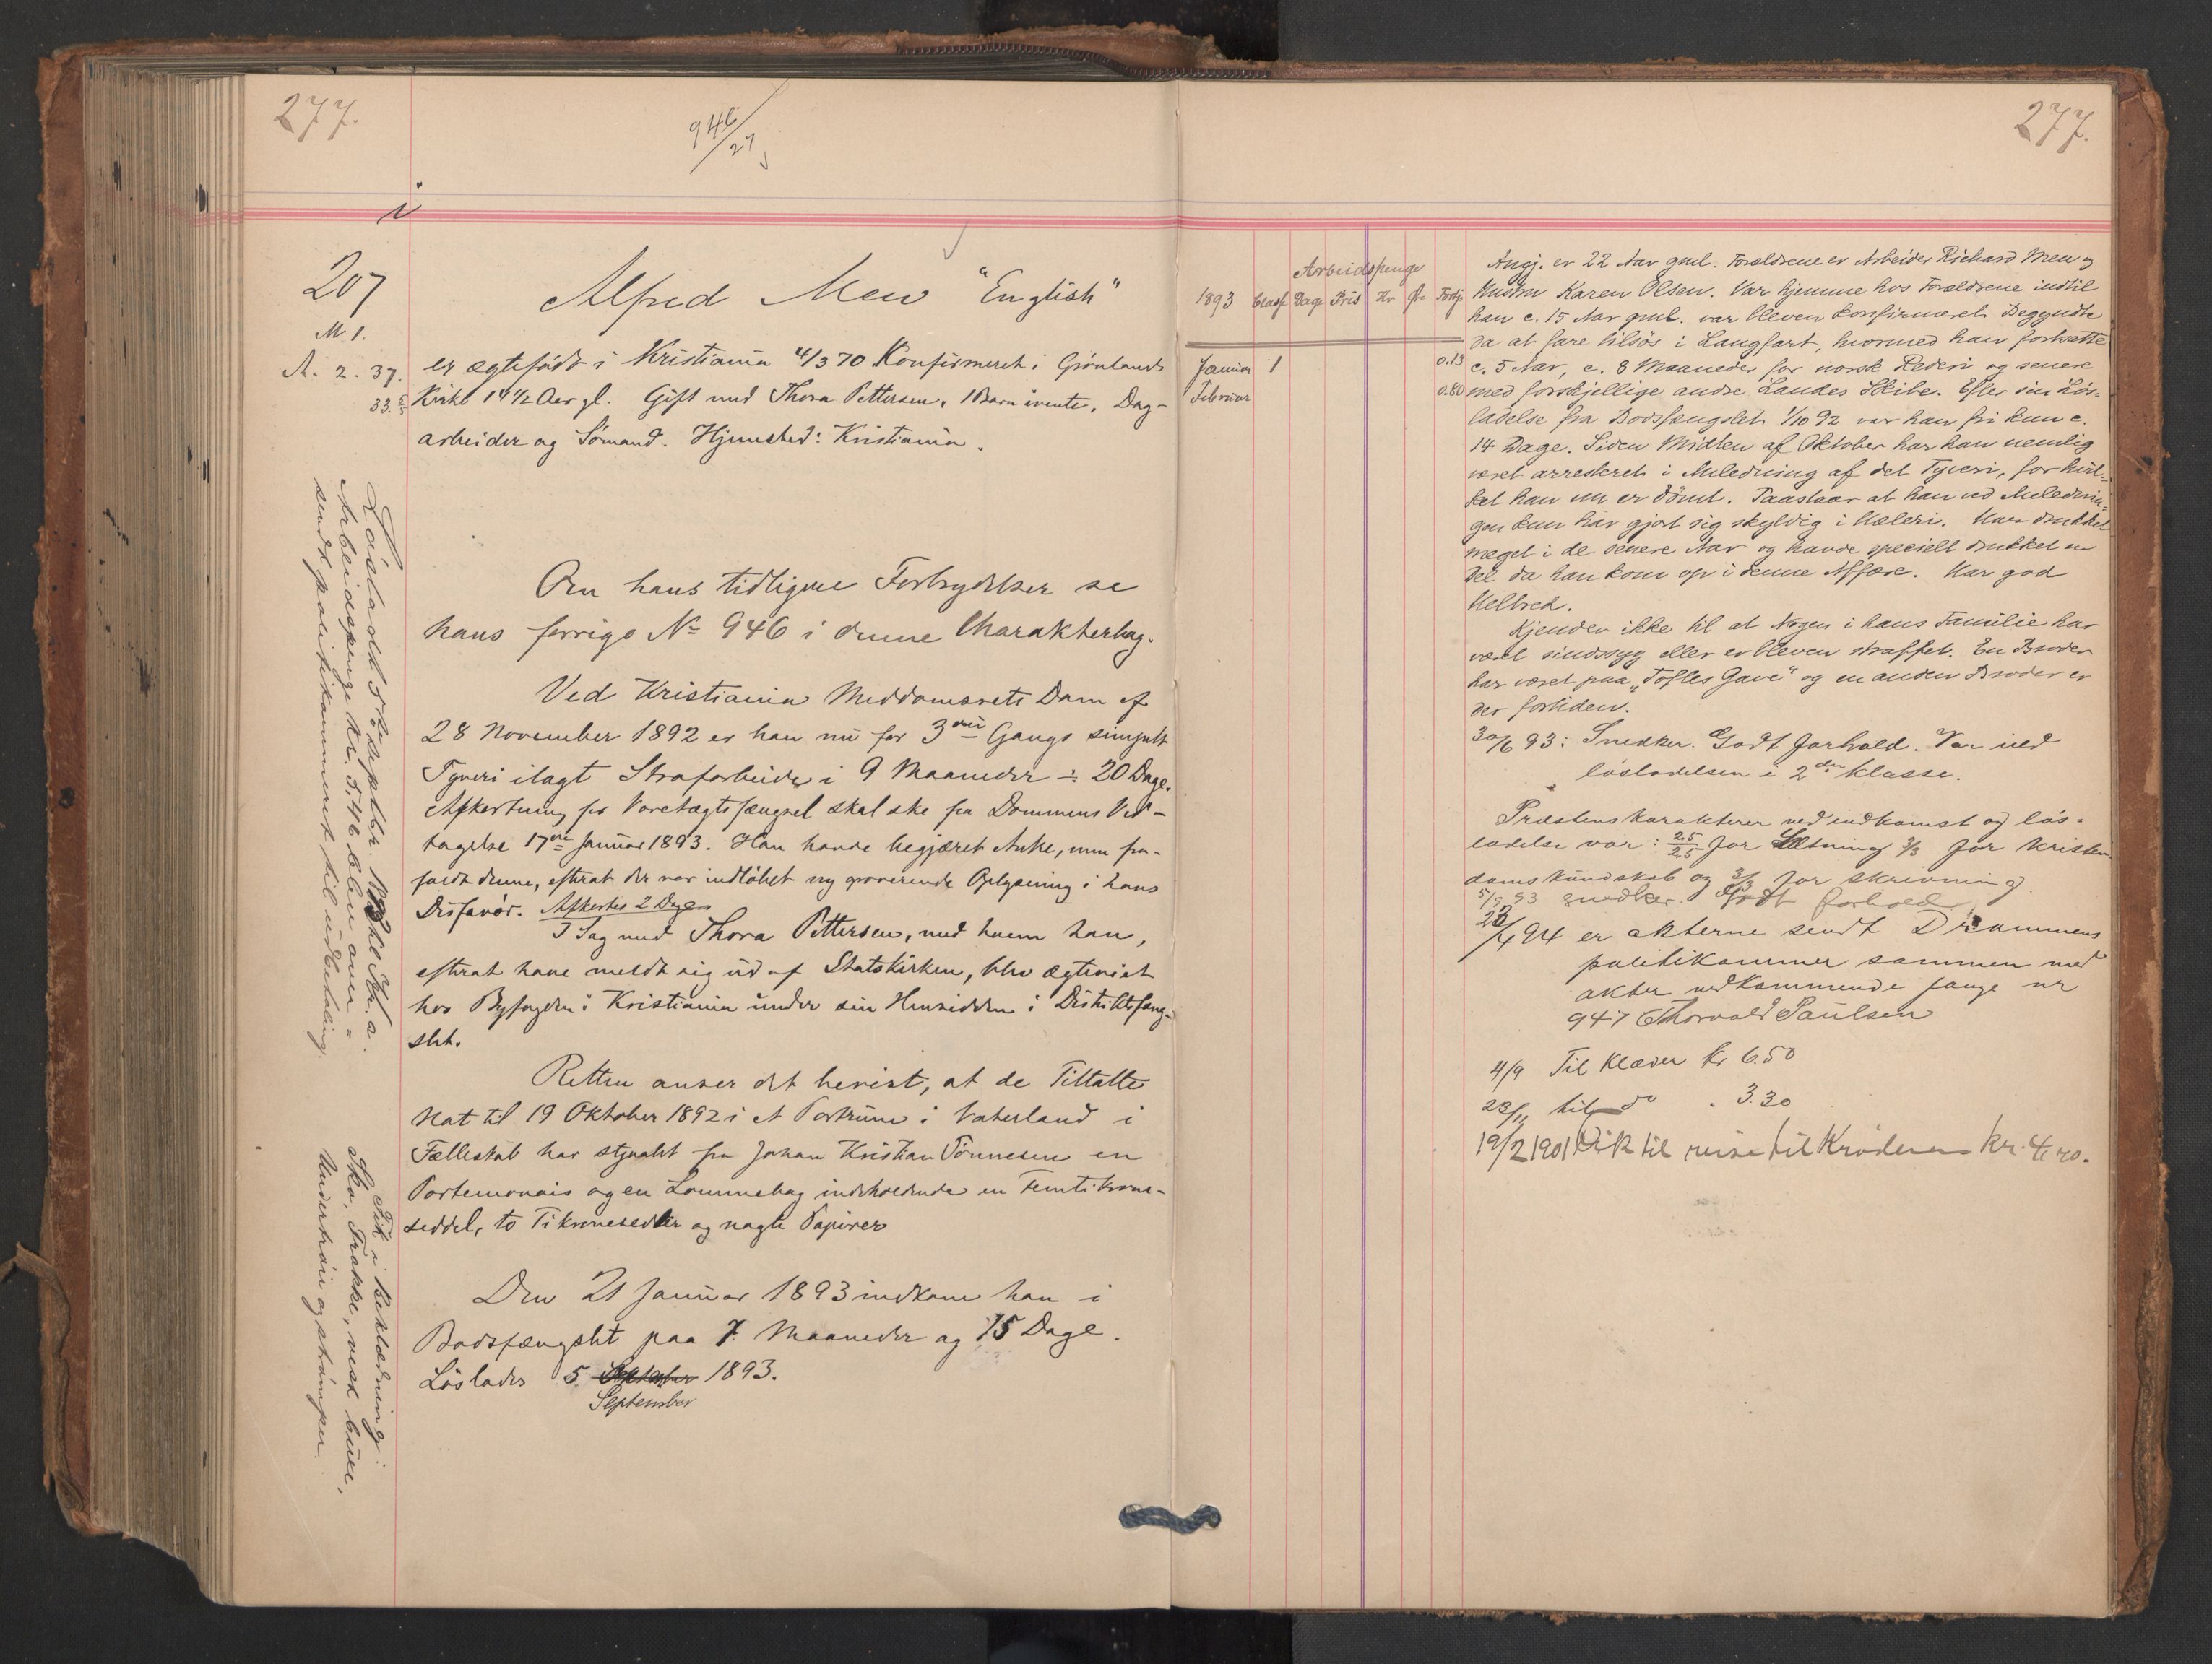 277.
946/27
i
207
M 1.
A. 2. 37.
33.
Alfred Mew "English"
er ægtefödt i Kristiania 4/3 70 Konfirmeret i Grönlands
Kirke 14 1/2 Aar gl. Gift med Thora Pettersen, 1 Barn ivente, Dag-
arbeider og Sömand. Hjemsted: Kristiania.
Om hans tidligere Forbrydelser se
hans forrige No 946 i denne Charakterbog.
Ved Kristiania Meddomsrets Dom af
28 November 1892 er han nu for 3die Gangs simpelt
Tyveri ilagt Strafarbeide i 9 Maaneder ÷ 20 Dage.
Afkortning for Varetægtsfængsel skal ske fra Dommens Ved-
tagelse 17de Januar 1893. Han havde begjæret Anke, men fra-
faldt denne, efterat der var indløbet ny graverende Oplysning i hans
Disfavör. Afkortes 2 Dage
I Sag med Thora Pettersen, med hvem han,
efterat have meldt sig ud af Statskirken, blev ægteviet
hos Byfogden i Kristiania under sin Hensidden i Distriktsfæng-
slet.
Retten anser det bevist, at de Tiltalte
Nat til 19 Oktober 1892 i et Portrum i Vaterland i
Fællesskab har stjaalet fra Johan Kristian Tönnesen en
Portemonais og en Lommebog indeholdende en Femtikrone-
seddel, to Tikronesedler og nogle Papirer
Den 21 Januar 1893 indkom han i
Bodsfængslet paa 7 Maaneder og 15 Dage.
Löslades 5 Oktober 1893.
September
Lösladt 5 Septbr. Kl. a.
Arbeidspenge Kr. 5,46 blev over-
sendt politikammeret til udbetaling.
Fik i Beklædning:
Sko, Frakke, vest buxe,
Undertröie og strömper.
277.
Arbeidspenge
1893 Classe Dage Pris Kr Øre Fortj
Januar 1 0.13
Februar 0.80
Angj. er 22 Aar gml. Forældrene er Arbeider Richard Mew og
Hustru Karen Olsen. Var hjemme hos Forældrene indtil
han c. 15 Aar gml. var bleven konfirmeret. Begyndte
da at fare tilsös i Langfart, hvormed han fortsatte
c. 5 Aar, c. 8 Maaneder for norsk Rederi og senere
med forskjellige andre Landes Skibe. Efter sin Lös-
ladelse fra Bodsfængslet 1/10 92 var han fri kun c.
14 Dage. Siden Midten af Oktober har han nemlig
været arresteret i Anledning af det Tyveri, for hvil-
ket han nu er dömt. Paastaar at han ved Anlednin-
gen kun har gjort sig skyldig i Hæleri. Har drukket
meget i de senere Aar og havde specielt drukket en
Del da han kom op i denne Affære. Har god
Helbred.
Kjender ikke til at Nogen i hans Familie har
været sindssyg eller er bleven straffet. En Broder
har været paa "Toftes Gave" og en anden Broder er
der fortiden.
30/6 93: Snedker. Godt forhold. Var ved
lösladelsen i 2den klasse.
Præstens karakterer ved indkomst og lös-
ladelse var: 2.5/2.5 for Læsning 3/3 for kristen-
doms kundskab og 3/3 for skrivning
5/9 93 snedker. Godt forhold
28/4 94 er akterne sendt Drammens
politikammer sammen med
akter vedkommende fange nr
947 Thorvald Paulsen
4/9 Til Klæder kr 6.50
23/11 til do . 3.30
19/2 1901 Fik til reise til Kröderen kr. 4,40.